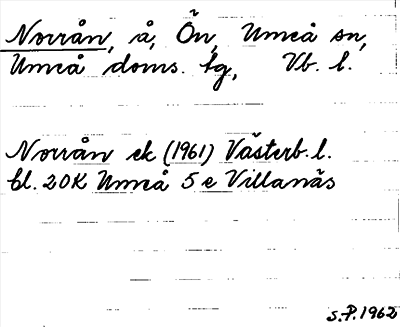 Norrån, å, Ön, Umeå sn,
Umeå doms. tg, Vb. l.
Norrån ek (1961) Västerb. l.
bl. 20K Umeå 5 e Villanäs
S.P. 1962